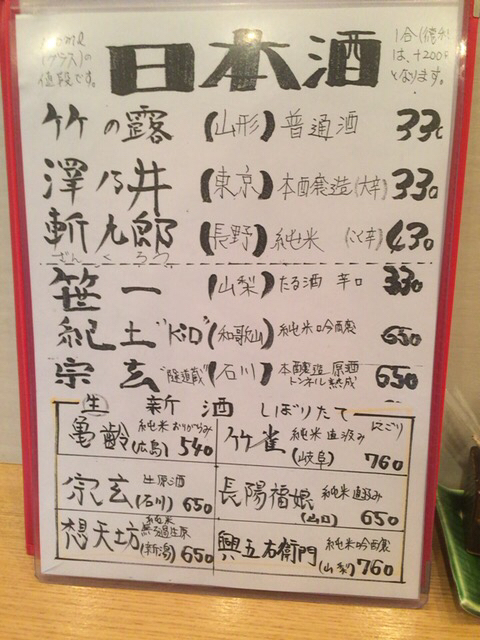 (グラス)の
値段です。
日本酒
1合(徳利)
は、+200
となります。
竹の露 (山形) 普通酒 330
澤乃井 (東京) 本醸造(大辛) 330
斬九郎 (長野) 純米 (こく辛) 430
ざんくろう
笹一 (山梨) たる酒 辛口 330
紀土"KID" (和歌山) 純米吟醸 650
宗玄"隧道蔵" (石川) 本醸造原酒 トンネル熟成 650
生 新酒 しぼりたて
亀齢 純米おりがらみ (広島) 540
竹雀 純米直汲み にごり (岐阜) 760
宗玄 生原酒 (石川) 650
長陽福娘 純米直汲み (山口) 650
想天坊 純米 無ろ過生原 (新潟) 650
興五右衛門 純米吟醸 (山梨) 760